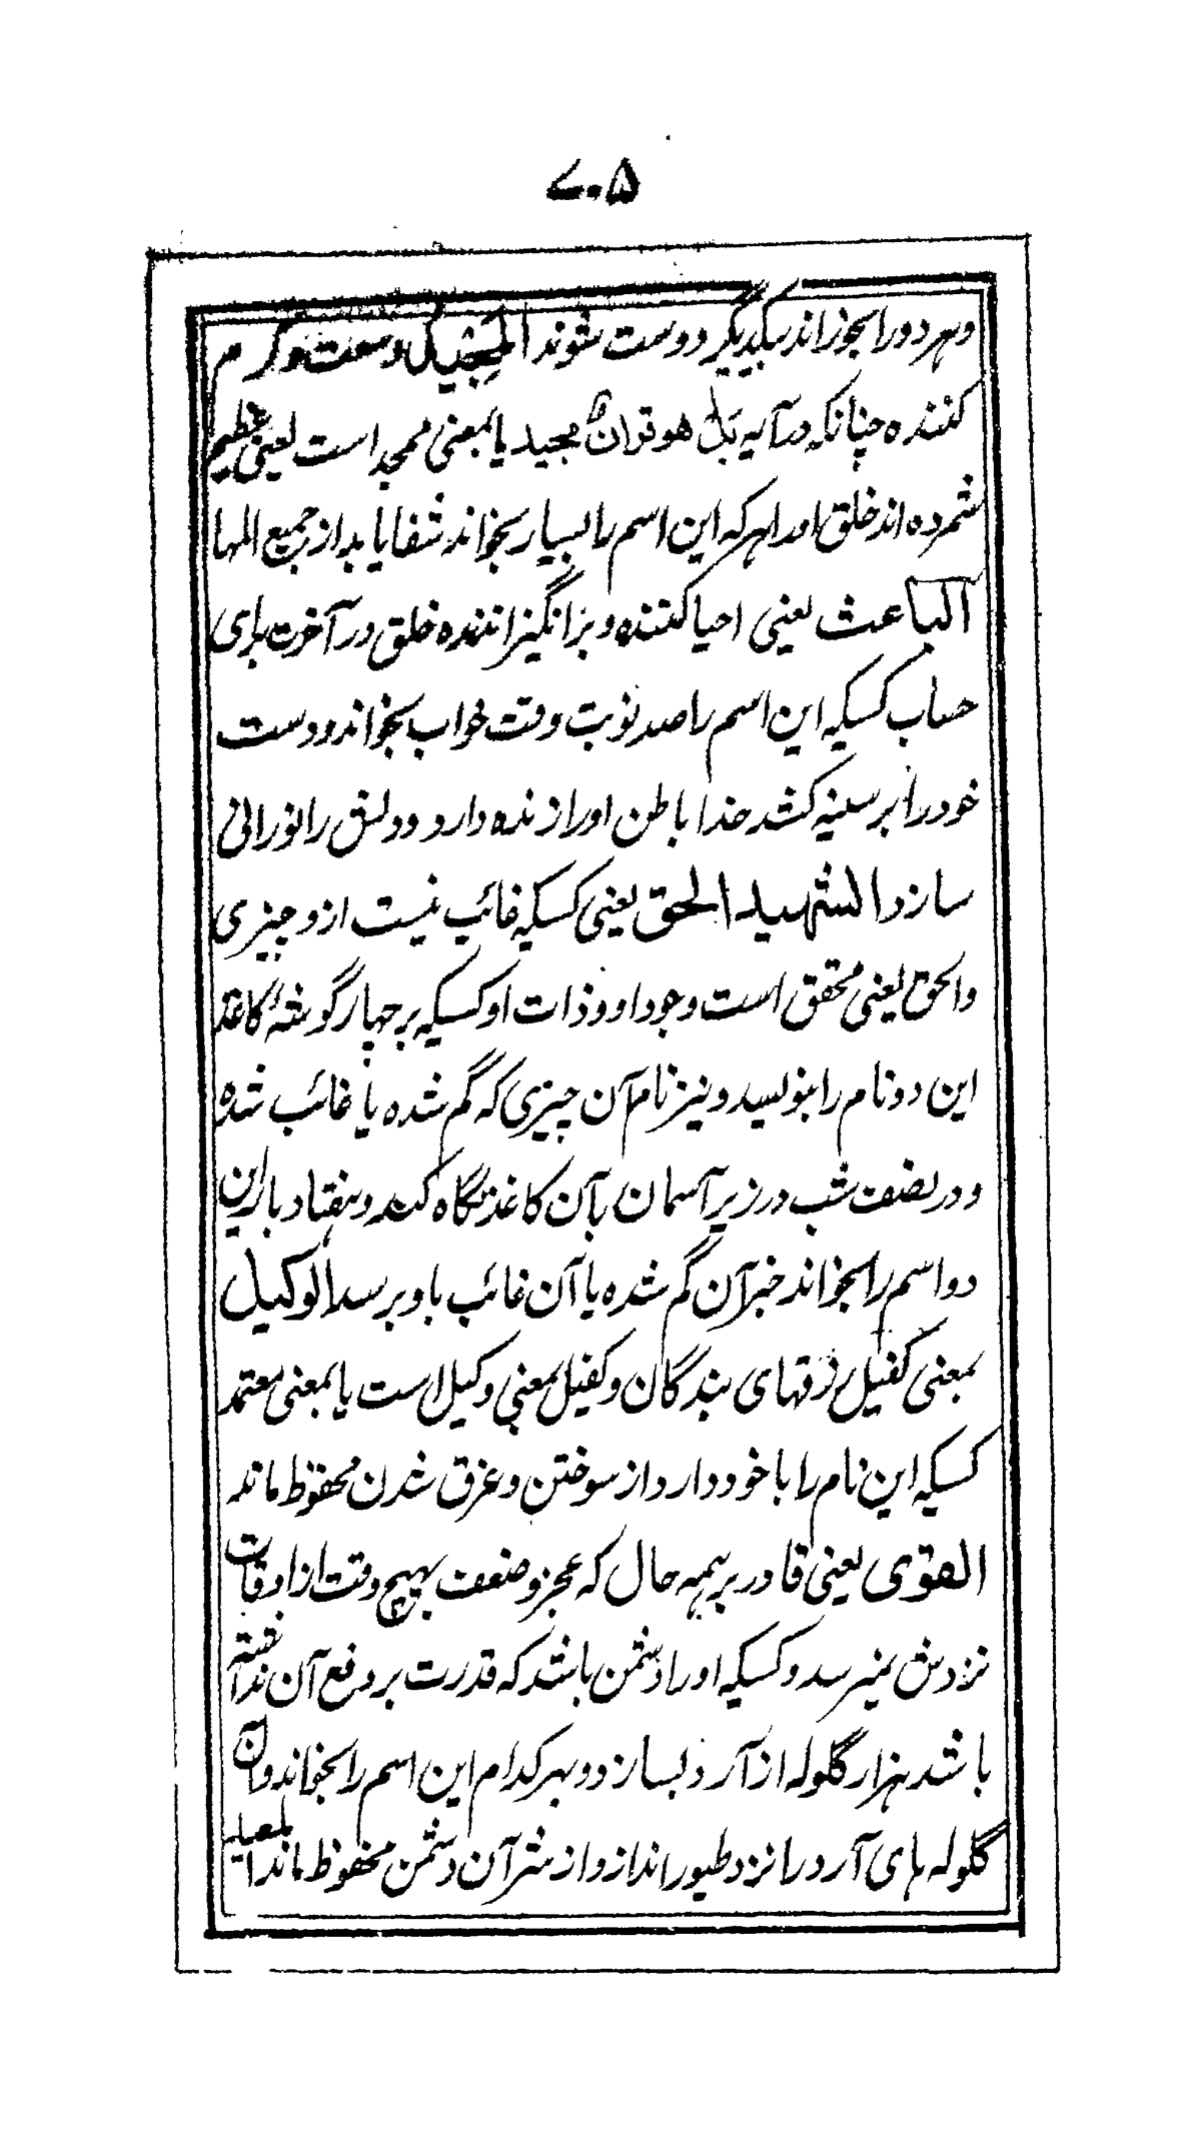 ۷۰۵
وهر دو را بخوراند بیکدیگر دوست شوند المجید یعنی وسعت و کرم
کننده چنانکه در آیه بل هو قرآن مجید یا بمعنی ممجد است یعنی عظیم
شمرده اند خلق او را هر که این اسم را بسیار بخواند شفا یابد از جمیع المها
الباعث یعنی احیا کننده و برانگیزاننده خلق در آخرت برای
حساب کسیکه این اسم را صد نوبت وقت خواب بخواند و دست
خود را بر سینه کشد خدا باطن او را زنده دارد و دلش را نورانی
سازد الشهید الحق یعنی کسیکه غائب نیست ازو چیزی
والحق یعنی محقق است وجود او و ذات او کسیکه بر چهار گوشهٔ کاغذ
این دو نام را بنویسد و نیز نام آن چیزی که گم شده یا غائب شده
و در نصف شب در زیر آسمان بآن کاغذ نگاه کند و هفتاد بار این
دو اسم را بخواند خبر آن گم شده یا آن غائب باو برسد الوکیل
بمعنی کفیل رزقهای بندگان و کفیل بمعنی وکیل است یا بمعنی معتمد
کسیکه این نام را با خود دارد از سوختن و غرق شدن محفوظ ماند
القوی یعنی قادر بر همه حال که عجز و ضعف بهیچ وقت از اوقات
نزدش نمیرسد و کسیکه او را دشمن باشد که قدرت بر دفع آن نداشته
باشد هزار گلوله از آرد بسازد و بهر کدام این اسم را بخواند و آن
گلوله های آرد را نزد طیور اندازد از شر آن دشمن محفوظ ماند